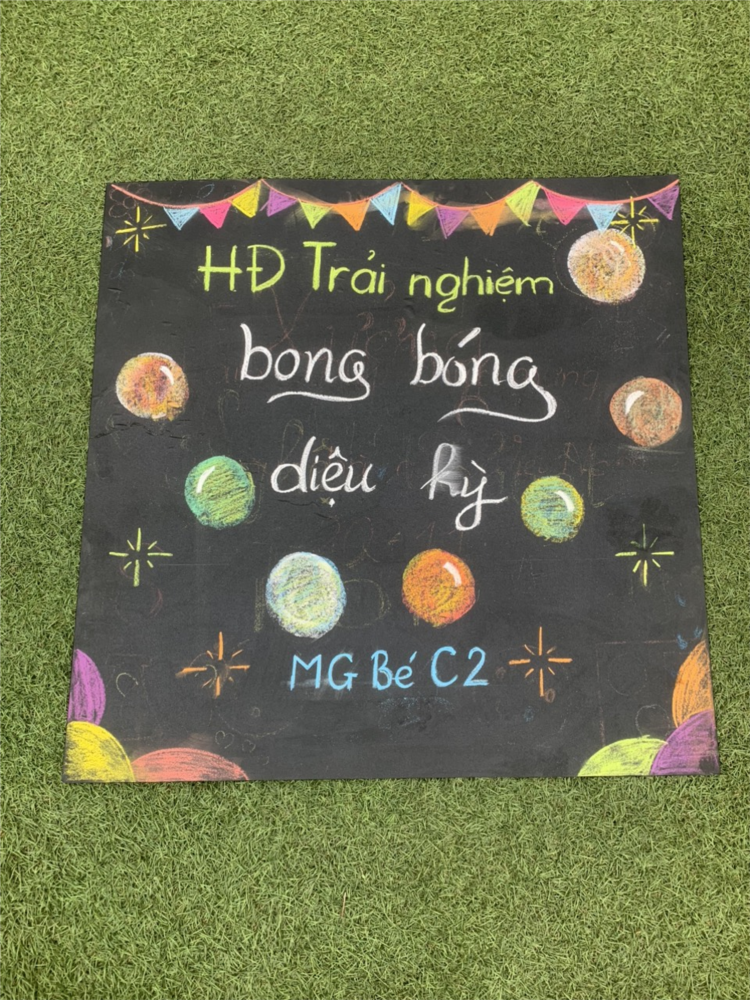 HĐ Trải nghiệm
bong bóng
diệu kỳ
MG Bé C2